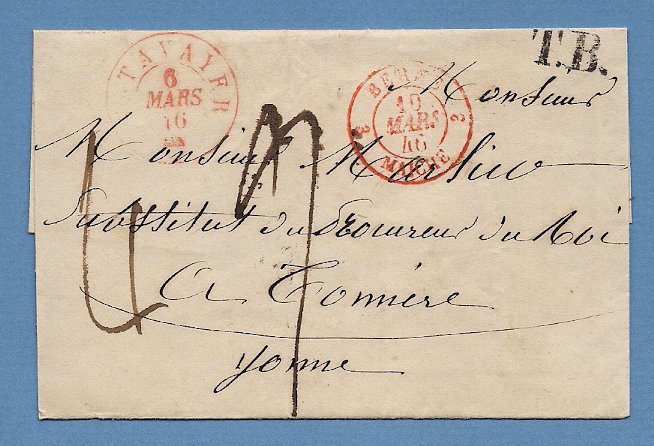 TAVAYER
6
MARS
46
T.B.
BERNE
10
MARS
46
MAICHE
3 3
Monsieur
Monsieur
Substitut du Procureur du Roi
A Tonnère
Yonne